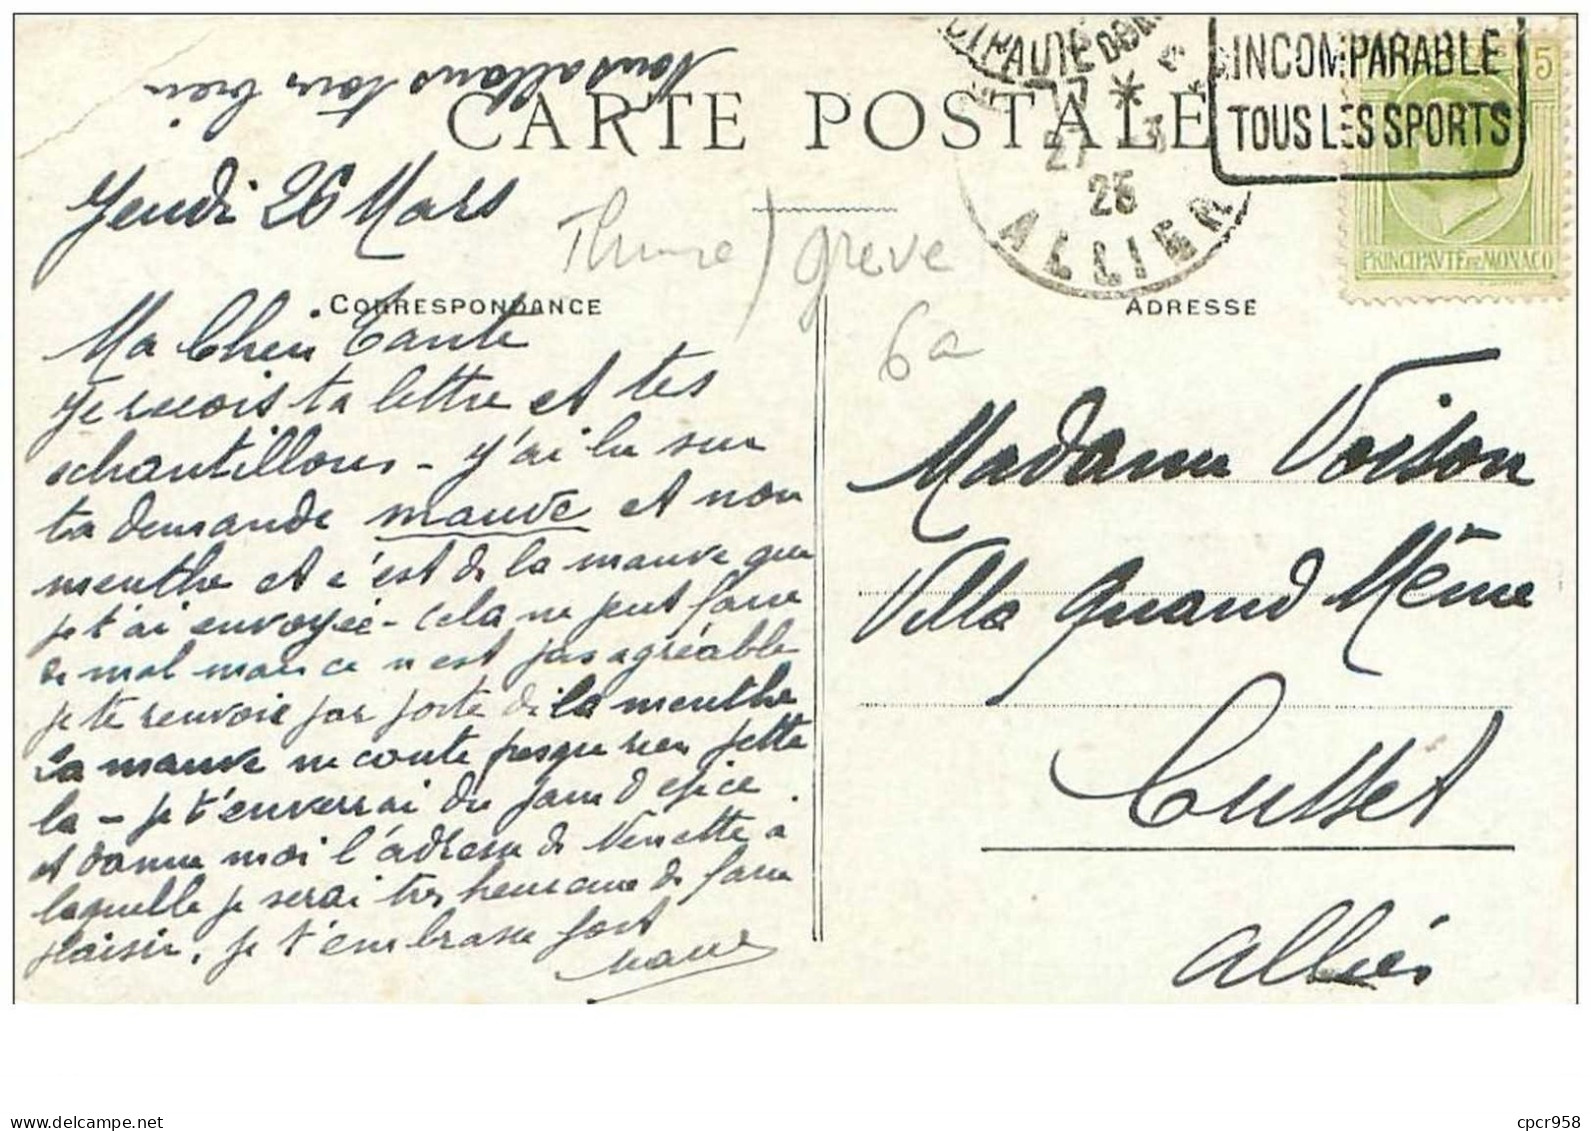 Nous allons tous bien
CARTE POSTALE
INCOMPARABLE
TOUS LES SPORTS
27 3
25
ALLIER
5
PRINCIPAVTE DE MONACO
Jeudi 26 Mars
grève
6a
CORRESPONDANCE
ADRESSE
Ma Chère Tante
Je reçois ta lettre et tes
échantillons - j'ai lu sur
ta demande mauve et non
menthe et c'est de la mauve que
je t'ai envoyée - cela ne peut faire
de mal mais ce n'est pas agréable
je te renvoie par poste de la menthe
La mauve ne coute presque rien jette
la - je t'enverrai du pain d'epice
et donne moi l'adresse de Venette à
laquelle je serai très heureuse de faire
plaisir. je t'embrasse fort
Madame Voison
Villa Quand Même
Cusset
Allier
delcampe.net
cpcr958